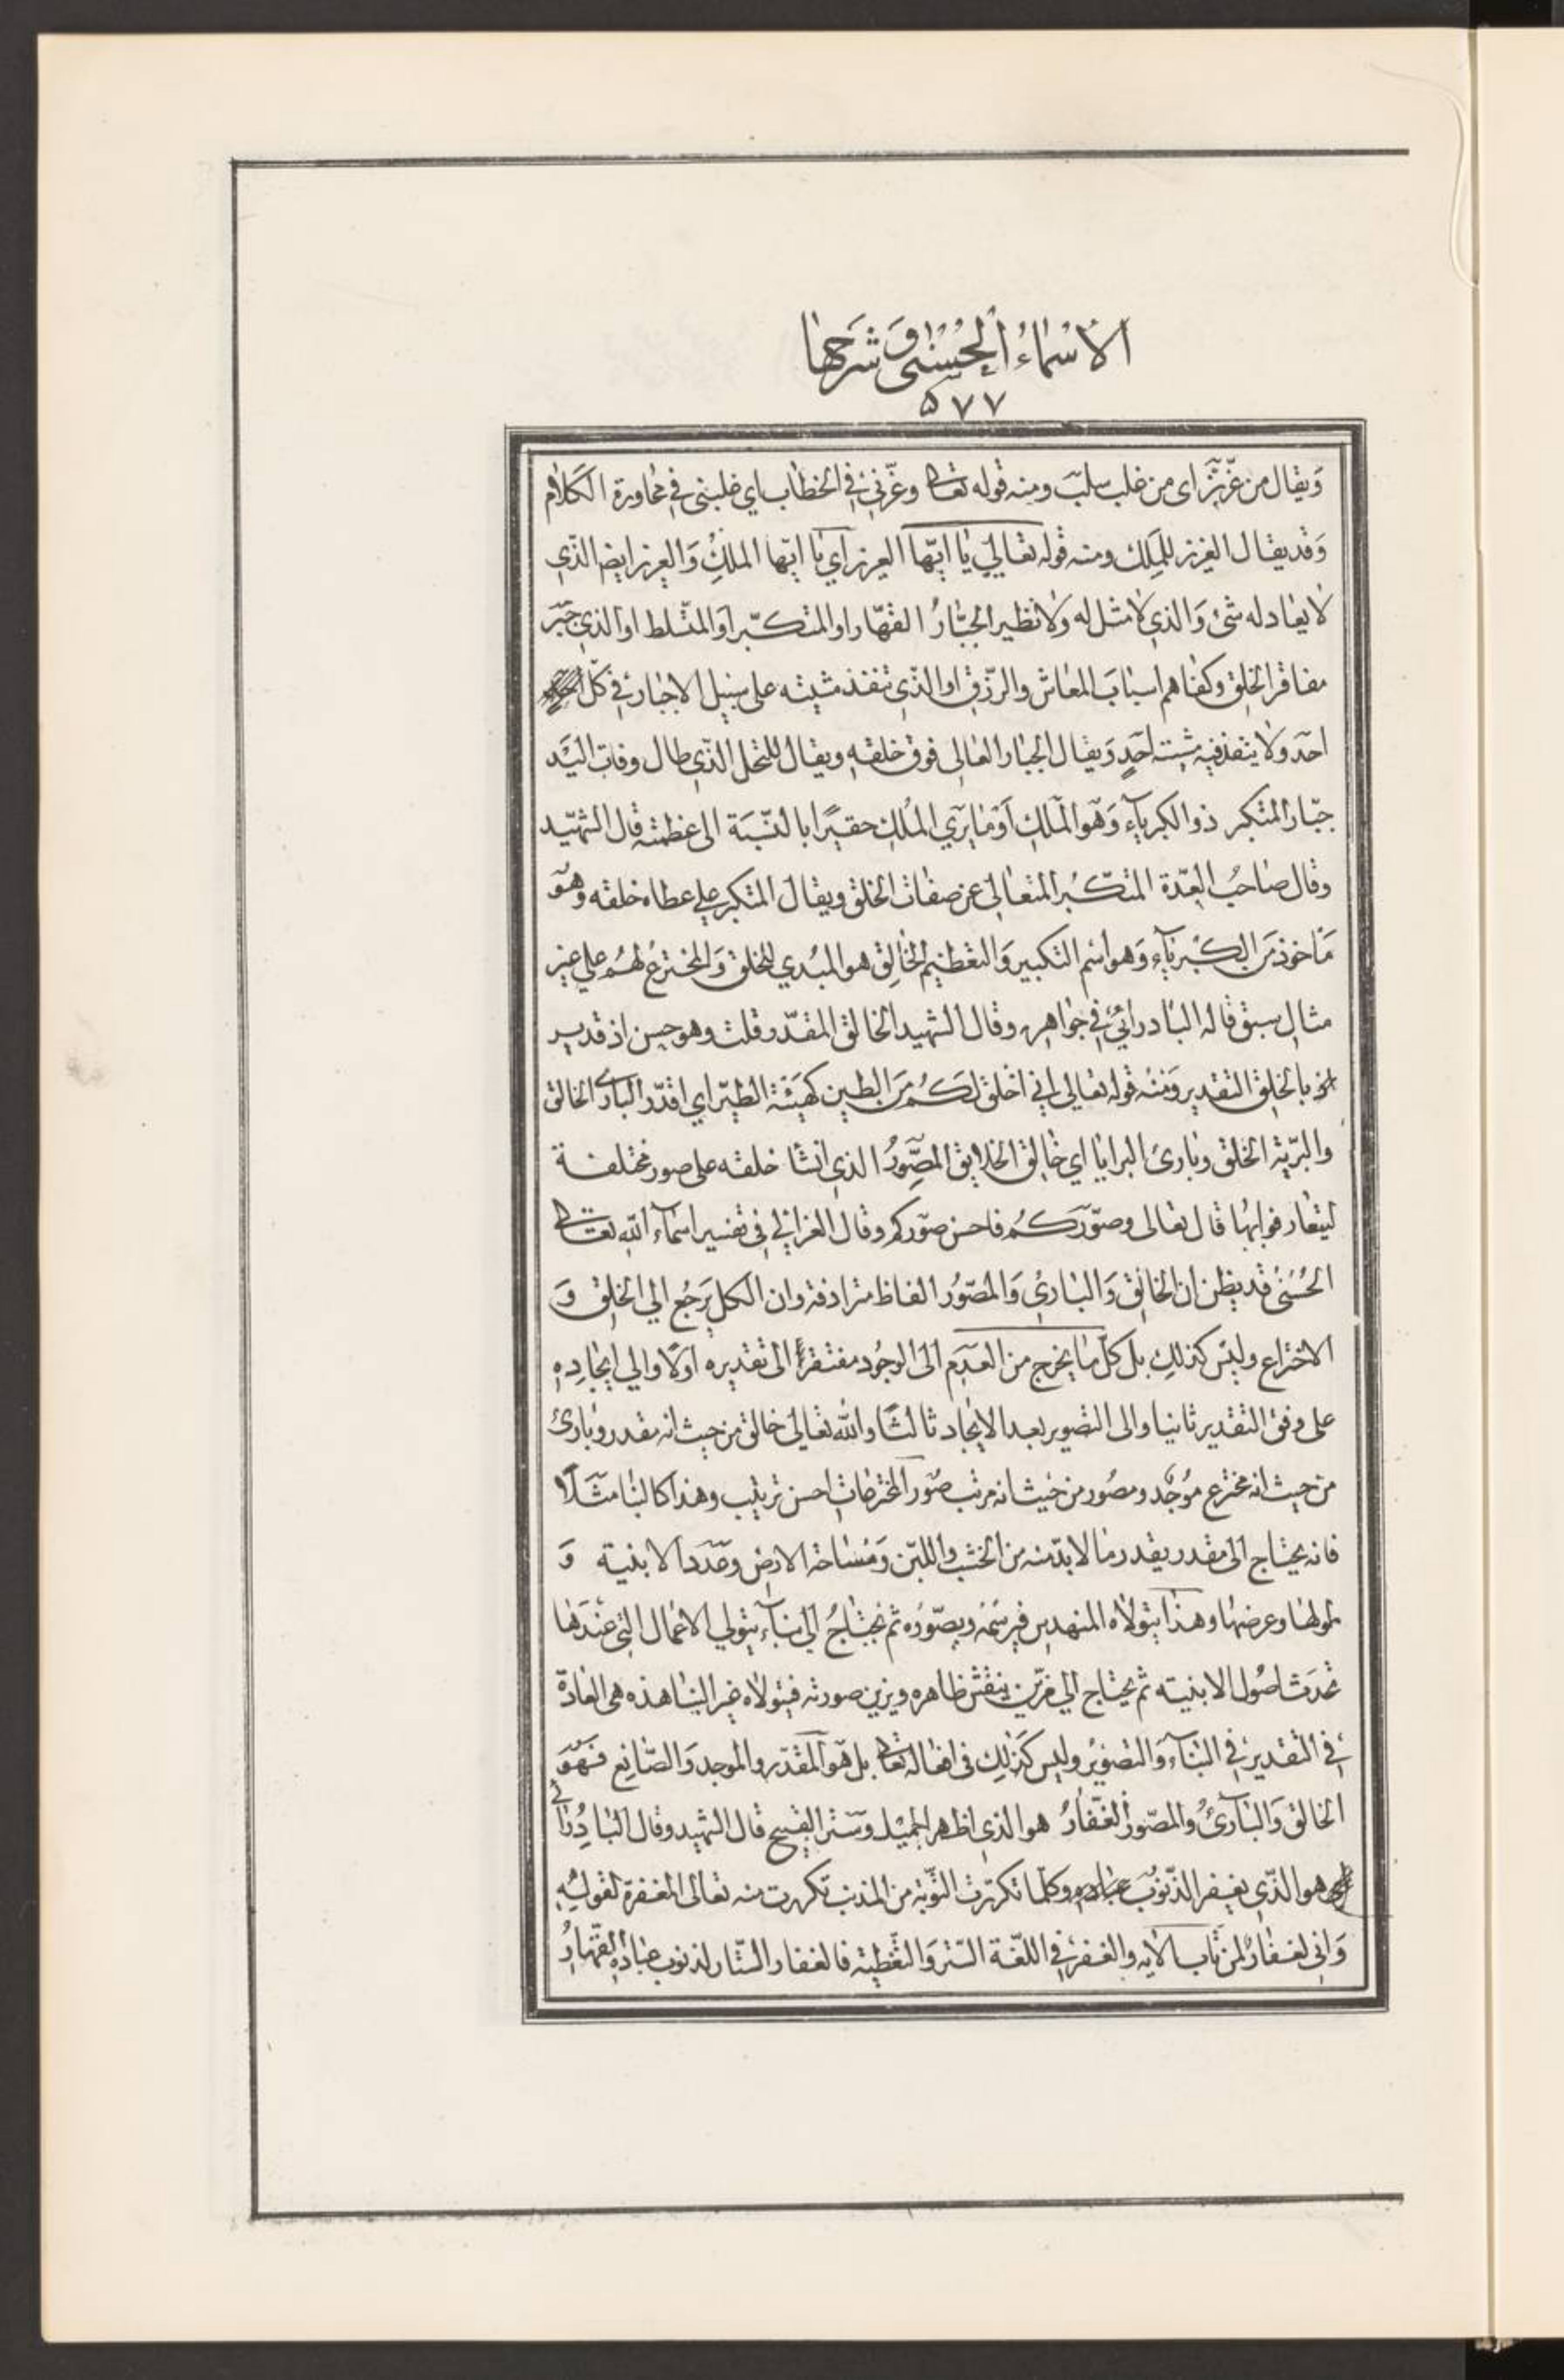 الاسماء الحسنى وشرحها
٥٧٧
وَيقال من عزّ بزّ اى من غلب سلبَ ومنه قوله تعالى وعزّني في الخطاب اي غلبني في محاورة الكلام
وَقد يقال العزيز للملِك ومنه قوله تعالي يا ايّها العزيز اي يا ايّها الملكُ وَالعزيز ايضا الذي
لا يعادله شئ وَالذي لا مثل له ولا نظير الجبّارُ القهّار او المتكبّر او المتسلط او الذي جبَر
مفاقر الخلق وكفاهم اسبابَ المعاش والرزق او الذي تنفذ مشيته على سبيل الاجبار في كلّ
احَد ولا ينفذ فيه مشيته احَدٍ وَيقال الجبار العالى فوق خلقهِ ويقال للنخل الذي طال وفات اليَد
جبّار المتكبر ذو الكبرياء وَهو الملك اَو ما يرَي الملك حقيرًا بالنّسبَة الى عظمته قال الشهيد
وقال صاحبُ العدّة المتكبّر المتعالى عن صفات الخلق ويقال المتكبر علي عطاه خلقه وهوَ
مَاخوذ مَن الكبرياء وَهو اسم التكبير وَالتعظيم الخَالِق هو المبدي للخلق وَالمخترع لهُم علي غير
مثال سبق قاله البادرائي في جواهره وقال الشهيد الخالق المقدّر قلت وهو حسن اذ قد يـ
ـراد بالخلق التقدير وَمنه قوله تعالى اني اخلق لكُم مَن الطين كهيئة الطير اي اقدّر البارئ الخالق
والبرّية الخلق وبارئ البرايا اي خالق الخلايق المصَوّرُ الذي انشا خلقه على صور مختلفة
ليتعارفوا بها قال تعالى وصوّرَكُم فاحسن صوركم وقال الغزالي في تفسير اسماء الله تعالى
الحُسنى قد يظن ان الخالق وَالبارئ وَالمصوّرُ الفاظ مترادفة وان الكل يَرجُع الي الخلق وَ
الاختراع وليس كذلك بل كلّ ما يخرج من العدَم الى الوجُود مفتقر الى تقديره اولًا والي ايجاده
على وفق التقدير ثانيا والى التصوير بعد الايجاد ثالثًا والله تعالى خالق من حيث انه مقدر وبارئ
من حيث انه مخترع مُوجد ومصُور من حيث انه مرتب صُور المخترعات احسن ترتيب وهذا كالبنا مثَلًا
فانه يحتاج الى مقدر يقدر ما لا بدّ منه من الخشب واللبن وَمسَاحة الارض وعَدَد الابنية وَ
طولها وعرضها وهذا يتولاه المنهدس فيرسمَه ويصوّره ثم يحتاجُ الي بناء يتولي الاعمال التي عندَها
تحدَث اصُول الابنيته ثم يحتاج الي مزيّن ينقش ظاهره ويزين صورته فيتولاه غير البنا هذه هى العادة
في التقدير في البناء وَالتصويرُ وليس كذلك فى افعاله تعالى بل هوَ المقدّر والموجد وَالصّانِع فهوَ
الخالق وَالبارئ والمصّور الغفّارُ هو الذى اظهر الجميل وسَتر القبيح قال الشهيد وقال البادرائي
هو الذّي يغفر الذّنوبَ عباده وكلّما تكررت التّوبة من المذنب تكررت منه تعالى المغفرة لقوله
وَانى لغفارٌ لمن تاب الايه والغفر في اللغة السّتر وَالتغطيته فالغفار السّتار لذنوب عباده القهارُ